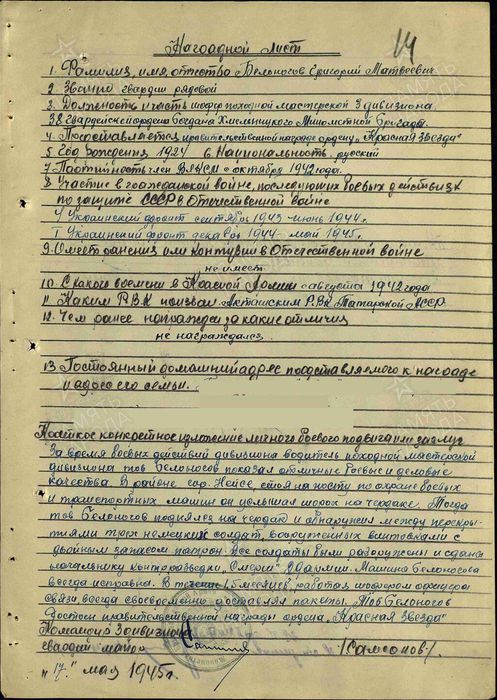 14
Наградной лист
1. Фамилия, имя, отчество Белоносов Григорий Матвеевич
2. Звание гвардии рядовой
3. Должность и часть шофер походной мастерской 3 дивизиона
32 гвардейской ордена Богдана Хмельницкого Минометной Бригады.
4. Представляется правительственной награде ордену "Красная Звезда"
5. Год рождения 1924 6. Национальность русский
7. Партийность член ВЛКСМ с октября 1942 года.
8. Участие в гражданской войне, последующих боевых действиях
по защите СССР в Отечественной войне
4 Украинский фронт сентябрь 1943 - июнь 1944 г.
I Украинский фронт декабрь 1944 - май 1945 г.
9. Имеет ранения или контузии в Отечественной войне
не имеет
10. С какого времени в Красной Армии с августа 1942 года
11. Каким РВК призван Актанышским РВК Татарской АССР.
12. Чем ранее награжден за какие отличия
не награждался.
13. Постоянный домашний адрес представляемого к награде
и адрес его семьи.
Краткое конкретное изложение личного боевого подвига или заслуг
За время боевых действий дивизиона водитель походной мастерской
дивизиона тов Белоносов показал отличные боевые и деловые
качества. В районе гор. Нейсе, стоя на посту по охране боевых
и транспортных машин он услышал шорох на чердаке. Тогда
тов Белоносов поднялся на чердак и обнаружил между перекры-
тиями трех немецких солдат, вооруженных винтовками с
двойным запасом патрон. Все солдаты были разоружены и сданы
начальнику контрразведки "Смерш" Армии. Машина Белоносова
всегда исправна. В течении 1,5 месяцев, работая шофером офицера
связи, всегда своевременно доставлял пакеты. Тов Белоносов
достоин правительственной награды ордена "Красная Звезда"
Командир 3 дивизиона
гвардии майор /Самсонов/.
"17." мая 1945 г.